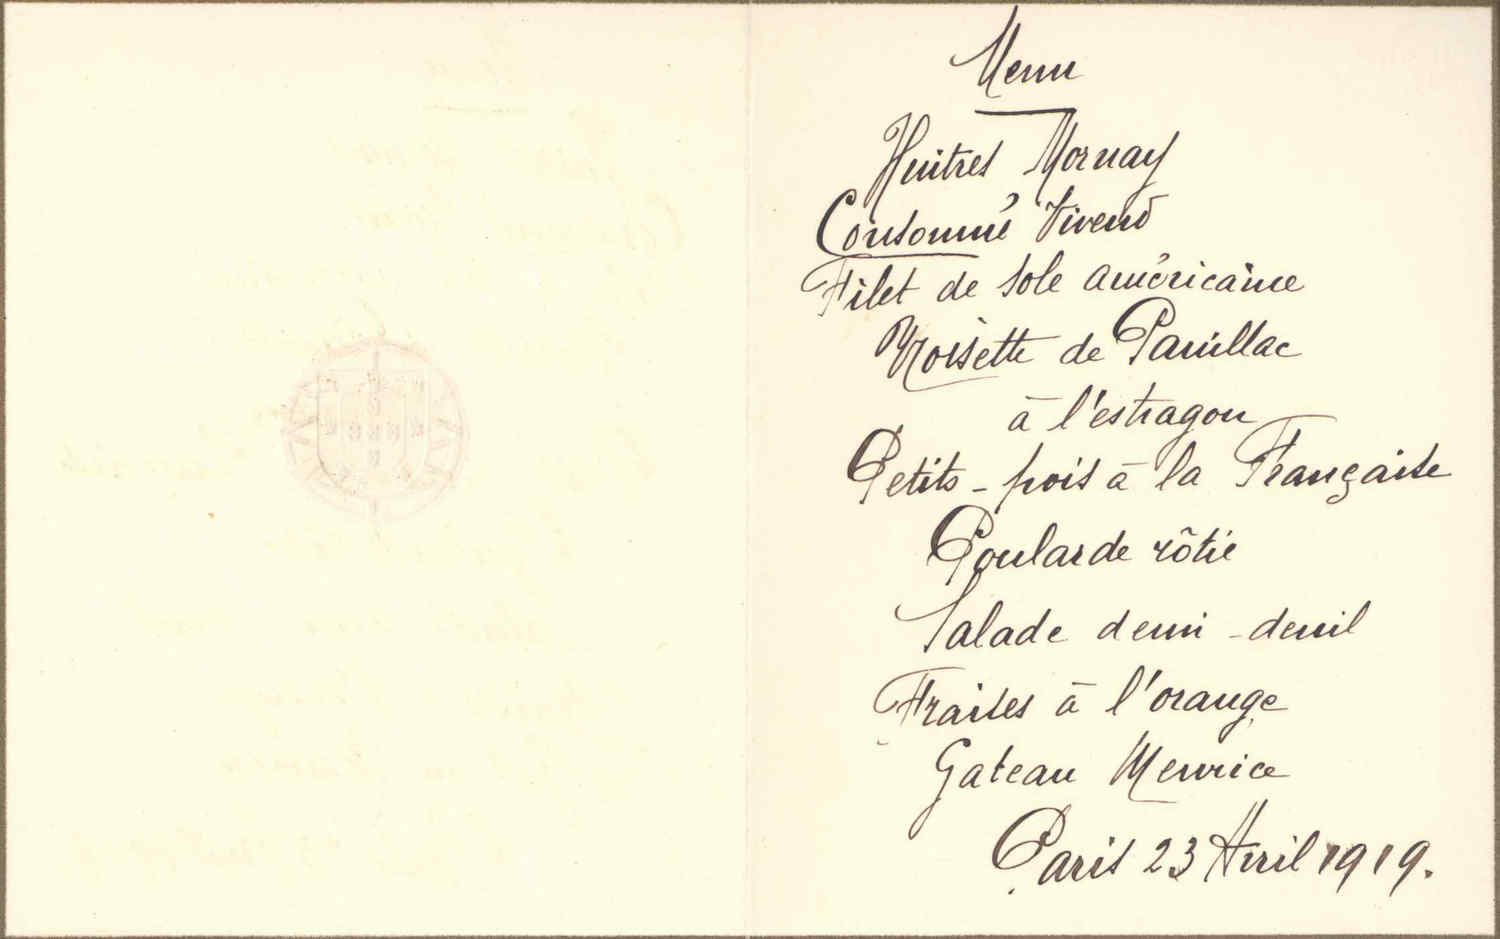 Menu
Huitres Mornay
Consommé Vivend
Filet de sole américaine
Noisette de Pauillac
à l'estragon
Petits-pois à la Française
Poularde rôtie
Salade demi-deuil
Fraises à l'orange
Gateau Meurice
Paris 23 Avril 1919.